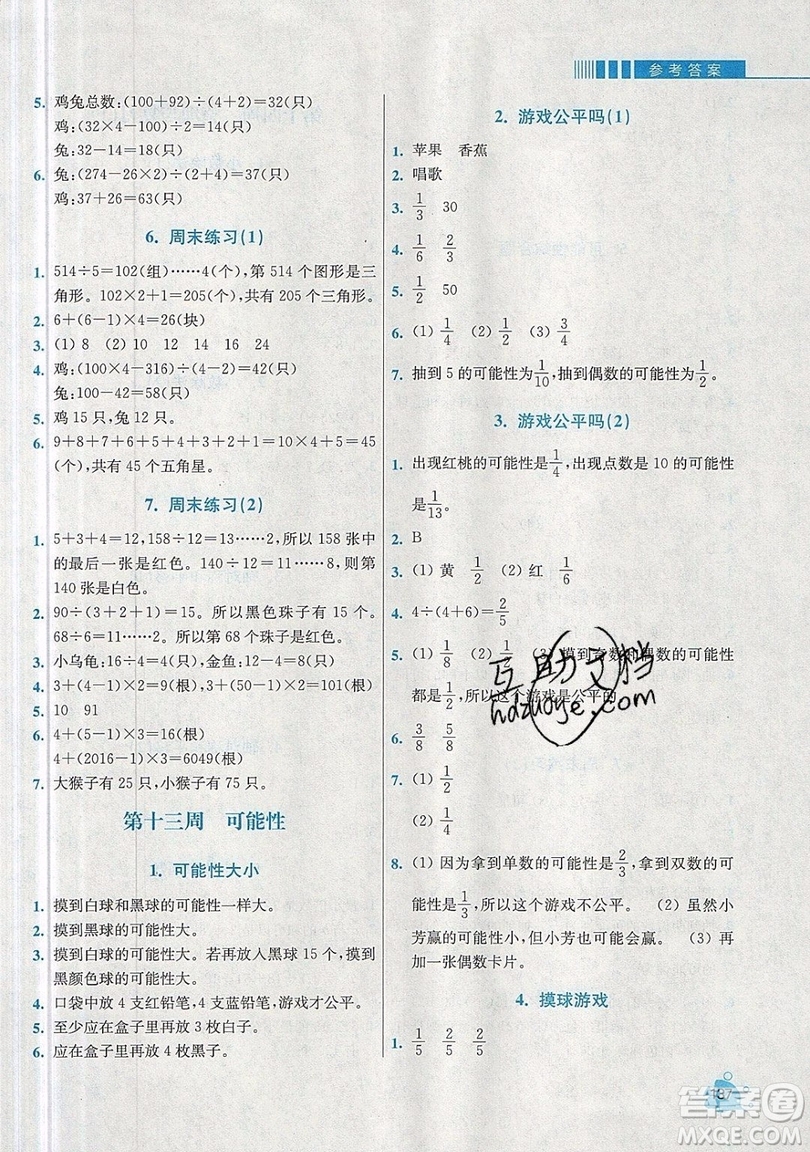 参考答案
5. 鸡兔总数:(100+92)÷(4+2)=32(只)
鸡:(32×4-100)÷(4-2)=14(只)
兔:32-14=18(只)
6. 兔:(274-26×2)÷(4+2)=37(只)
鸡:37+26=63(只)
6. 周末练习(1)
1. 514÷5=102(组)……4(个),第 514 个图形是三
角形。102×2+1=205(个),共有 205 个三角形。
2. 6+(6-1)×4=26(块)
3. (1) 8 (2) 10 12 14 16 24
4. 鸡:(100×4-316)÷(4-2)=42(只)
兔:100-42=58(只)
5. 鸡 15 只,兔 12 只。
6. 9+8+7+6+5+4+3+2+1=10×4+5=45
(个),共有 45 个五角星。
7. 周末练习(2)
1. 5+3+4=12,158÷12=13……2,所以 158 张中
的最后一张是红色。140÷12=11……8,则第
140 张是白色。
2. 90÷(3+2+1)=15。所以黑色珠子有 15 个。
68÷6=11……2。所以第 68 个珠子是红色。
3. 小乌龟:16÷4=4(只),金鱼:12-4=8(只)
4. 3+(4-1)×2=9(根),3+(50-1)×2=101(根)
5. 10 91
6. 4+(5-1)×3=16(根)
4+(2016-1)×3=6049(根)
7. 大猴子有 25 只,小猴子有 75 只。
第十三周 可能性
1. 可能性大小
1. 摸到白球和黑球的可能性一样大。
2. 摸到黑球的可能性大。
3. 摸到白球的可能性大。若再放入黑球 15 个,摸到
黑颜色球的可能性大。
4. 口袋中放 4 支红铅笔,4 支蓝铅笔,游戏才公平。
5. 至少应在盒子里再放 3 枚白子。
6. 应在盒子里再放 4 枚黑子。
2. 游戏公平吗(1)
1. 苹果 香蕉
2. 唱歌
3. 1/3 30
4. 1/6 2/3
5. 1/2 50
6. (1) 1/4 (2) 1/2 (3) 3/4
7. 抽到 5 的可能性为1/10,抽到偶数的可能性为1/2。
3. 游戏公平吗(2)
1. 出现红桃的可能性是1/4,出现点数是 10 的可能性
是1/13。
2. B
3. (1) 黄 1/2 (2) 红 1/6
4. 4÷(4+6)=2/5
5. (1) 1/8 (2) 1/2 (3) 摸到奇数和偶数的可能性
都是1/2,所以这个游戏是公平的
6. 3/8 5/8
7. (1) 1/2
(2) 1/4
8. (1) 因为拿到单数的可能性是2/3,拿到双数的可
能性是1/3,所以这个游戏不公平。 (2) 虽然小
芳赢的可能性小,但小芳也可能会赢。 (3) 再
加一张偶数卡片。
4. 摸球游戏
1. 1/5 2/5 2/5
互助文档
hdzuoye.com
187
答案圈
MXQE.COM